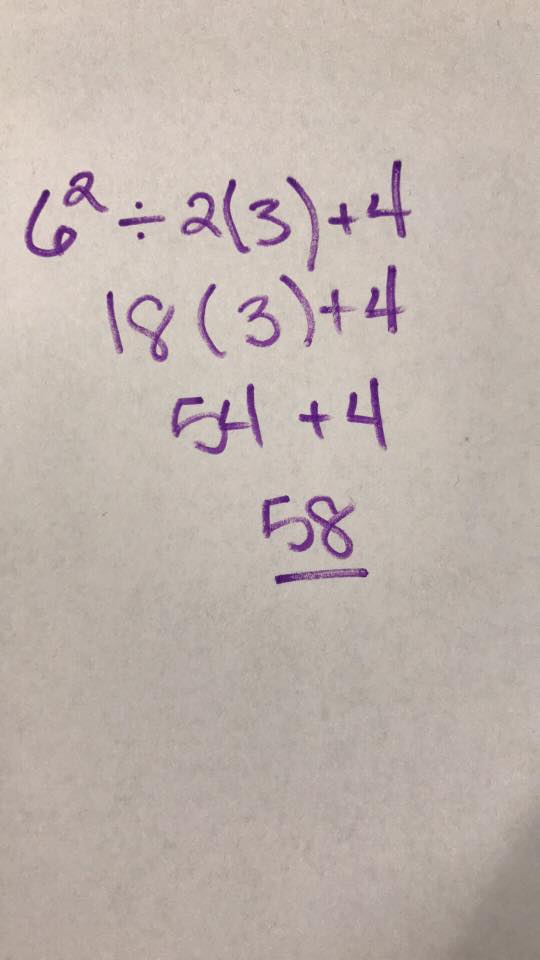 6² ÷ 2(3)+4
18(3)+4
54 + 4
58